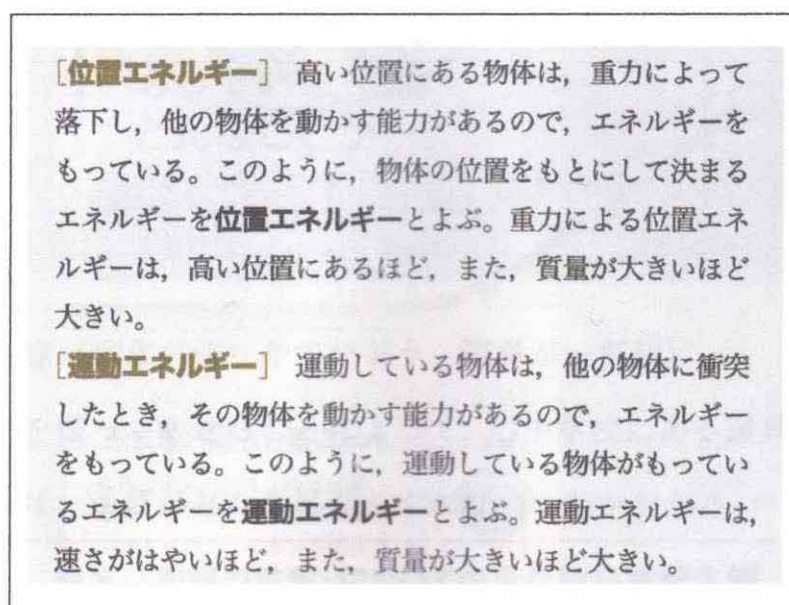 [位置エネルギー] 高い位置にある物体は，重力によって
落下し，他の物体を動かす能力があるので，エネルギーを
もっている。このように，物体の位置をもとにして決まる
エネルギーを位置エネルギーとよぶ。重力による位置エネ
ルギーは，高い位置にあるほど，また，質量が大きいほど
大きい。
[運動エネルギー] 運動している物体は，他の物体に衝突
したとき，その物体を動かす能力があるので，エネルギー
をもっている。このように，運動している物体がもってい
るエネルギーを運動エネルギーとよぶ。運動エネルギーは，
速さがはやいほど，また，質量が大きいほど大きい。